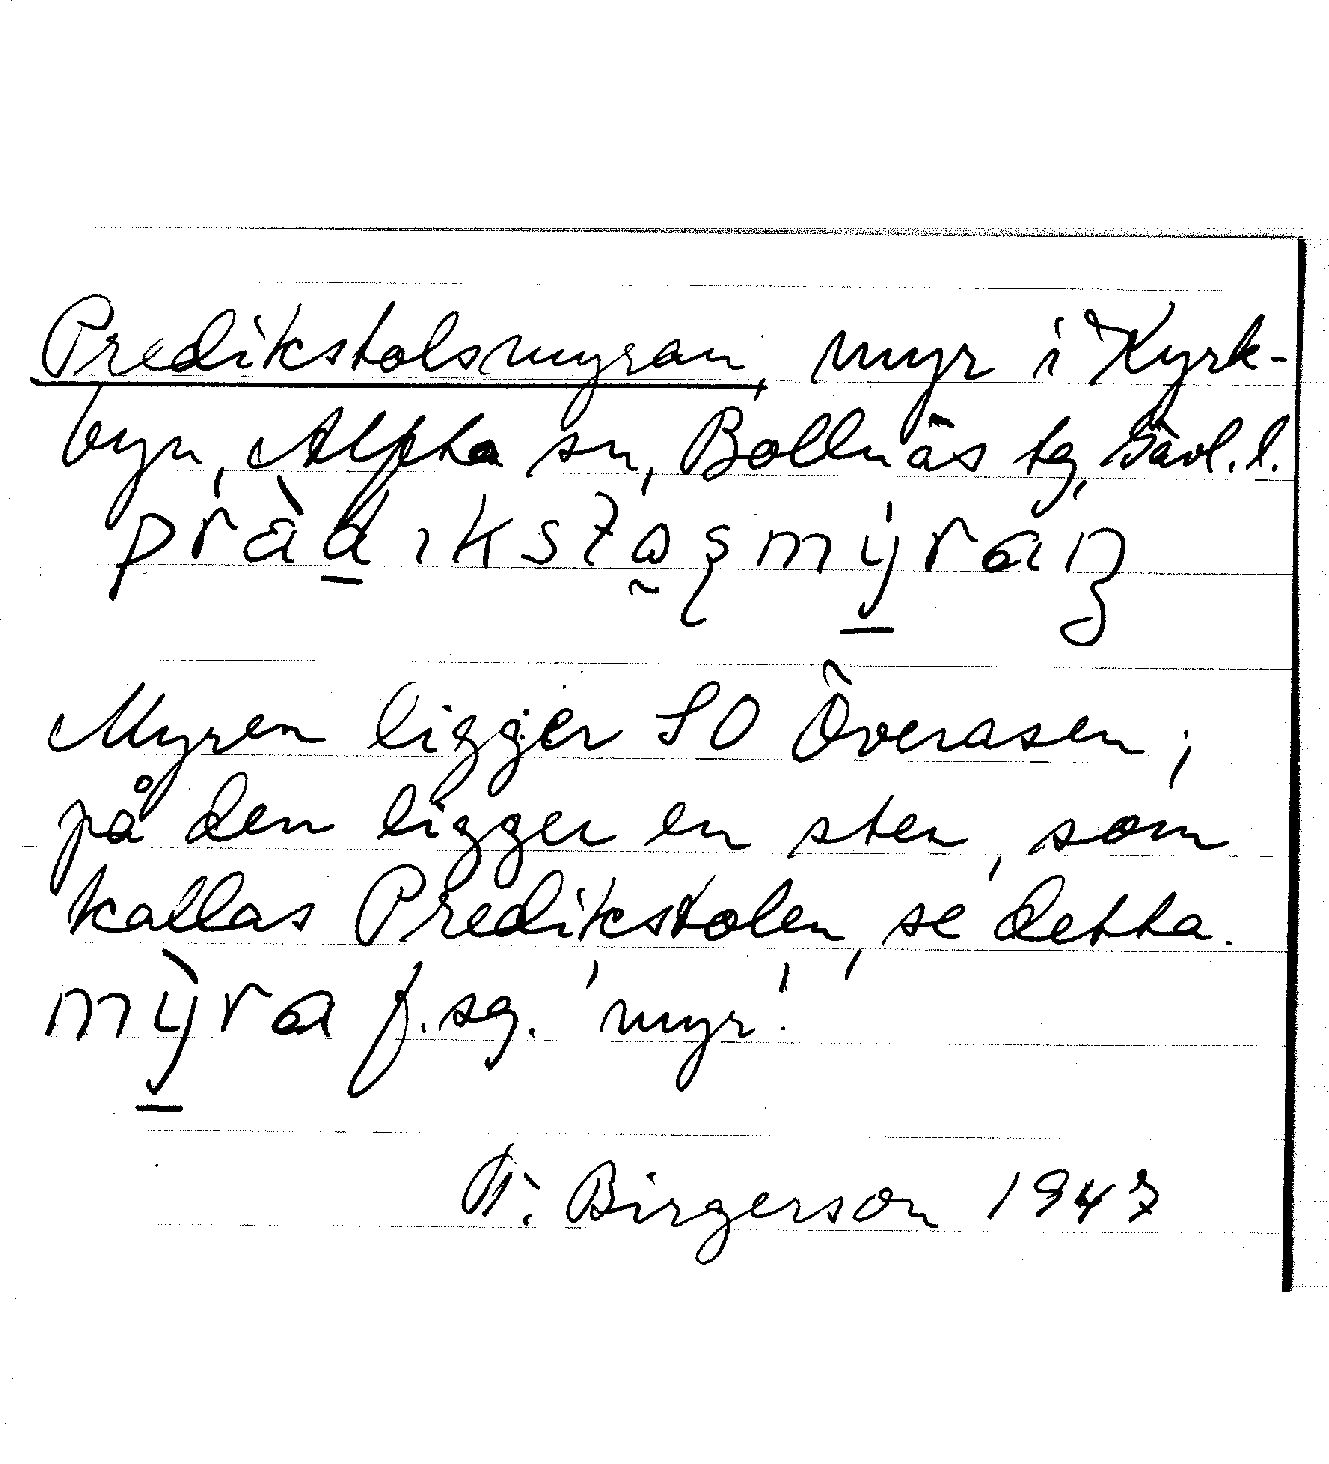 Predikstolsmyran, myr i Kyrk-
byn, Alfta sn, Bollnäs tg, Gävl. l.
Myren ligger SO Överåsen;
på den ligger en sten, som
kallas Predikstolen, se detta.
mỳra f. sg. 'myr'.
W. Birgerson 1947